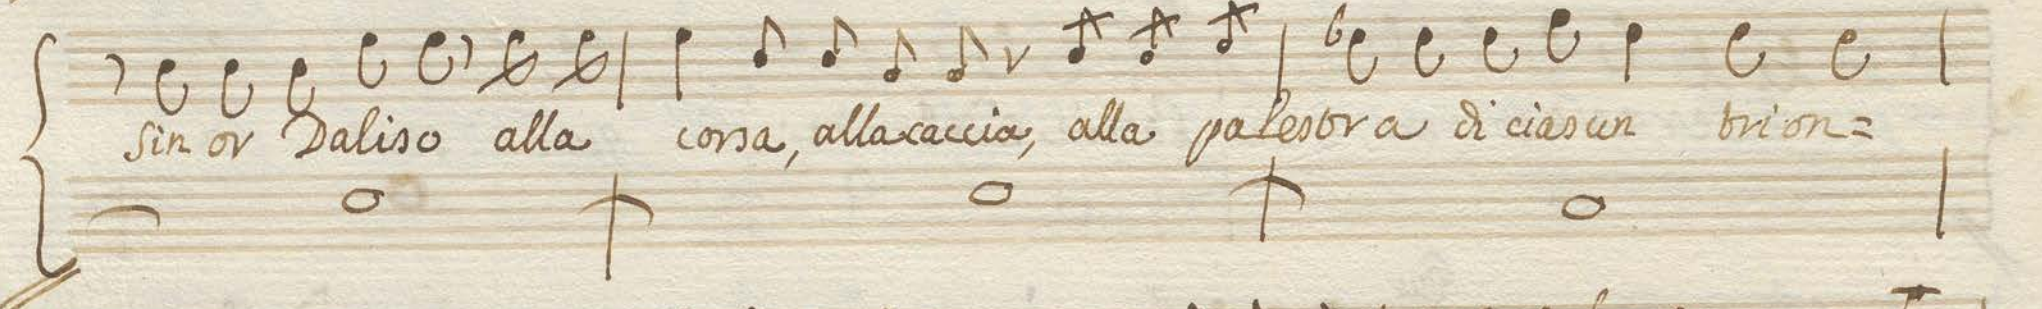 Sin or Daliso alla corsa, alla caccia, alla palestra di ciascun trion=